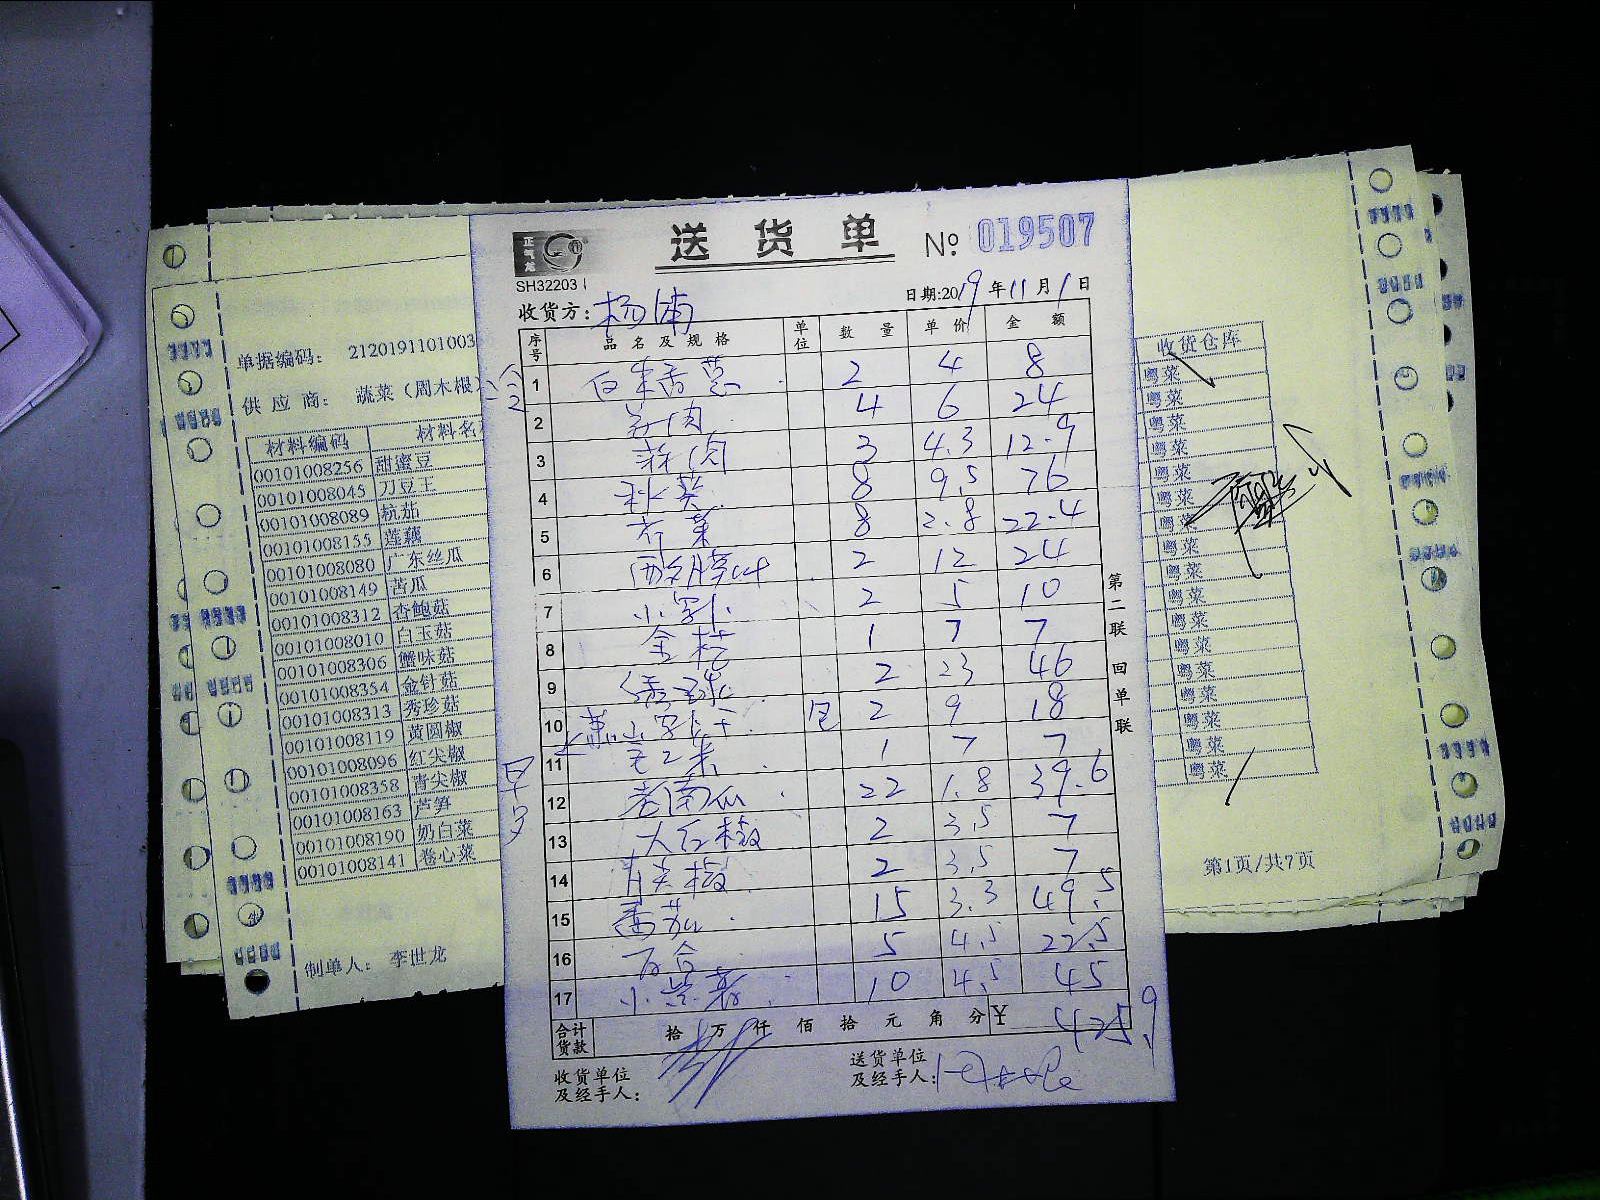 送货单 № 019507
正气龙
SH32203
收货方: 杨浦 日期:2019年11月1日
序号 品名及规格 单位 数量 单价 金额
1 2 4 8
2 4 6 24
3 3 4.3 12.9
4 8 9.5 76
5 8 2.8 22.4
6 2 12 24
7 2 5 10
8 金桔 1 7 7
9 2 23 46
10 包 2 9 18
11 玉米 1 7 7
12 老南瓜 22 1.8 39.6
13 大红椒 2 3.5 7
14 青尖椒 2 3.5 7
15 番茄 15 3.3 49.5
16 百合 5 4.5 22.5
17 小紫薯 10 4.5 45
合计货款 拾 万 仟 佰 拾 元 角 分 ¥ 425.9
收货单位及经手人:
送货单位及经手人:
第二联 回单联
单据编码: 2120191101003
供应商: 蔬菜(周木根
材料编码 材料名
00101008256 甜蜜豆
00101008045 刀豆王
00101008089 杭茄
00101008155 莲藕
00101008080 广东丝瓜
00101008149 苦瓜
00101008312 杏鲍菇
00101008010 白玉菇
00101008306 蟹味菇
00101008354 金针菇
00101008313 秀珍菇
00101008119 黄圆椒
00101008096 红尖椒
00101008358 青尖椒
00101008163 芦笋
00101008190 奶白菜
00101008141 卷心菜
制单人: 李世龙
收货仓库
粤菜
粤菜
粤菜
粤菜
粤菜
粤菜
粤菜
粤菜
粤菜
粤菜
粤菜
粤菜
粤菜
粤菜
粤菜
粤菜
粤菜
第1页/共7页